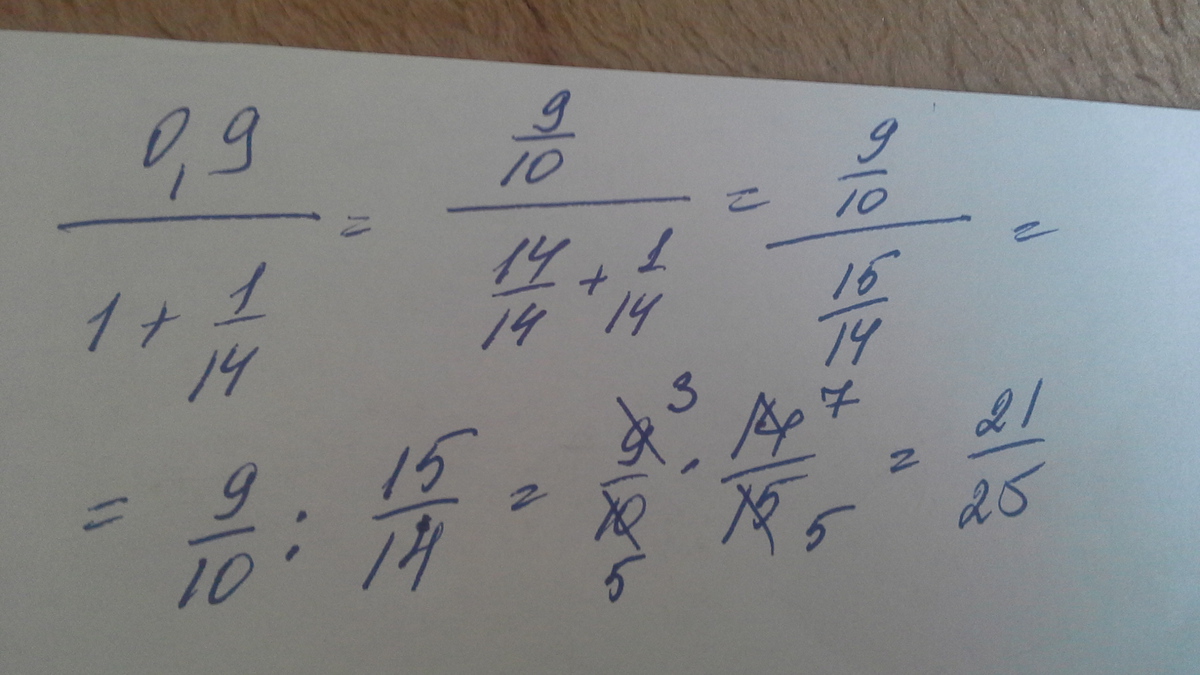 0,9 / (1 + 1/14) = (9/10) / (14/14 + 1/14) = (9/10) / (15/14) =
= 9/10 : 15/14 = 9 3/10 5 · 14 7/15 5 = 21/25